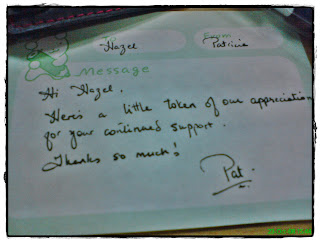 Hazel
From
Patricia
Message
Hi Hazel,
Here's a little token of our appreciation
for your continued support.
Thanks so much!
Pat